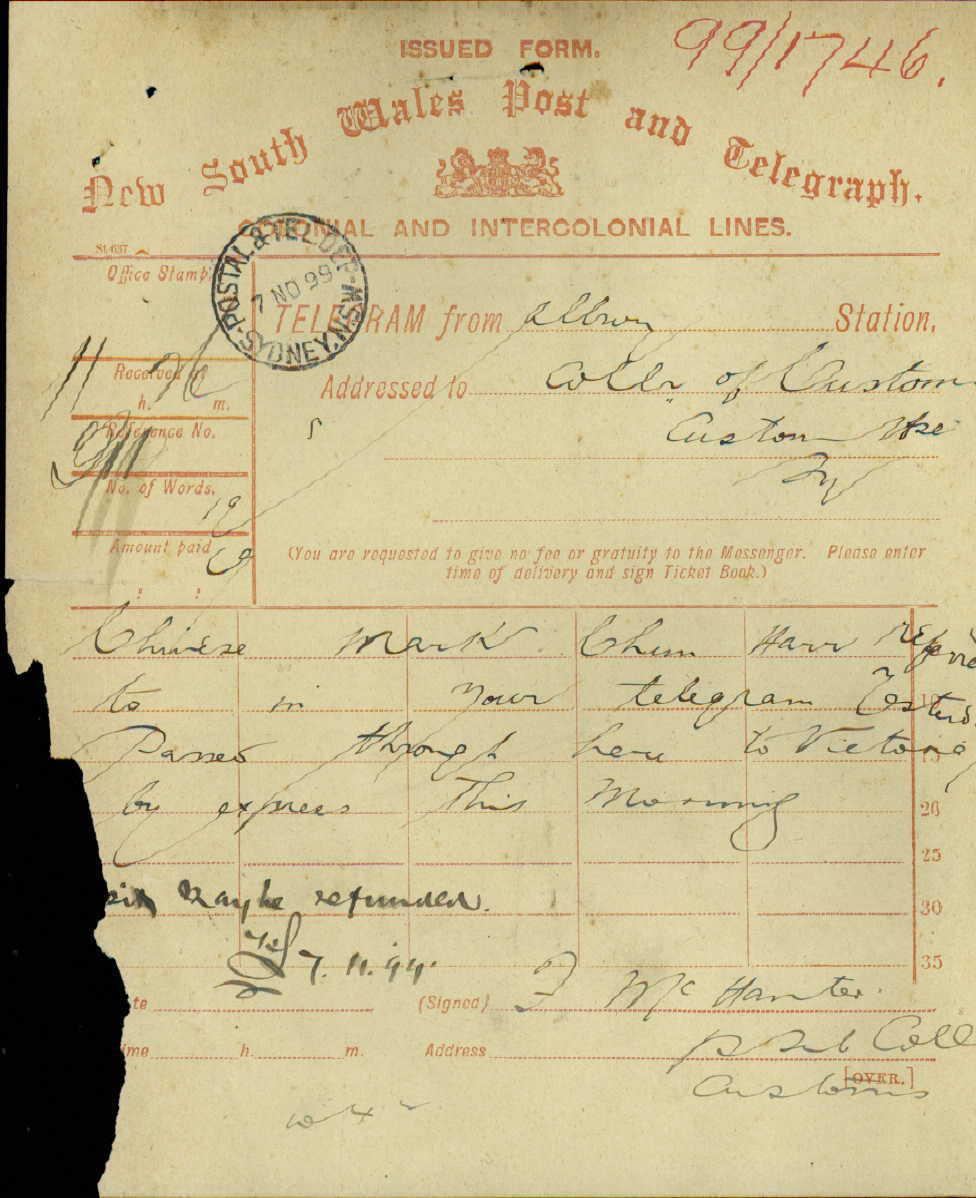 99/1746.
ISSUED FORM.
New South Wales Post and Telegraph.
COLONIAL AND INTERCOLONIAL LINES.
St 637
Office Stamp.
POSTAL & TEL. DEP. N.S.W. SYDNEY.
7 NO 99
TELEGRAM from Albury Station.
Received at
11 h. m.
Addressed to Coller of Custom
Custom Hse
Sy
Reference No.
No. of Words,
19
Amount paid
: :
(You are requested to give no fee or gratuity to the Messenger. Please enter
time of delivery and sign Ticket Book.)
Chinese Mark Chum Harr referre
to in your telegram Yesterd 10
Passed through here to Victoria 15
by express this Morning 20
25
May be refunded. 30
7.11.99. 35
te (Signed) F McHanter
ime h. m. Address p Sub Coll
[OVER.]
Customs